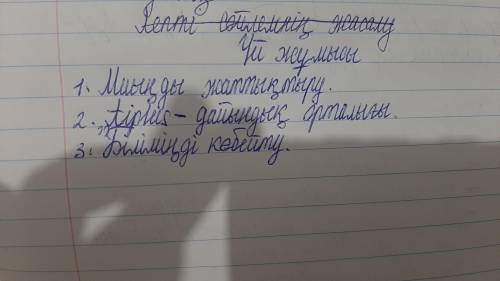 Репті сөйлемнің жасалу
Үй жұмысы
1. Миыңды жаттықтыру.
2. „Aiplus – дайындық орталығы.
3. Біліміңді көбейту.